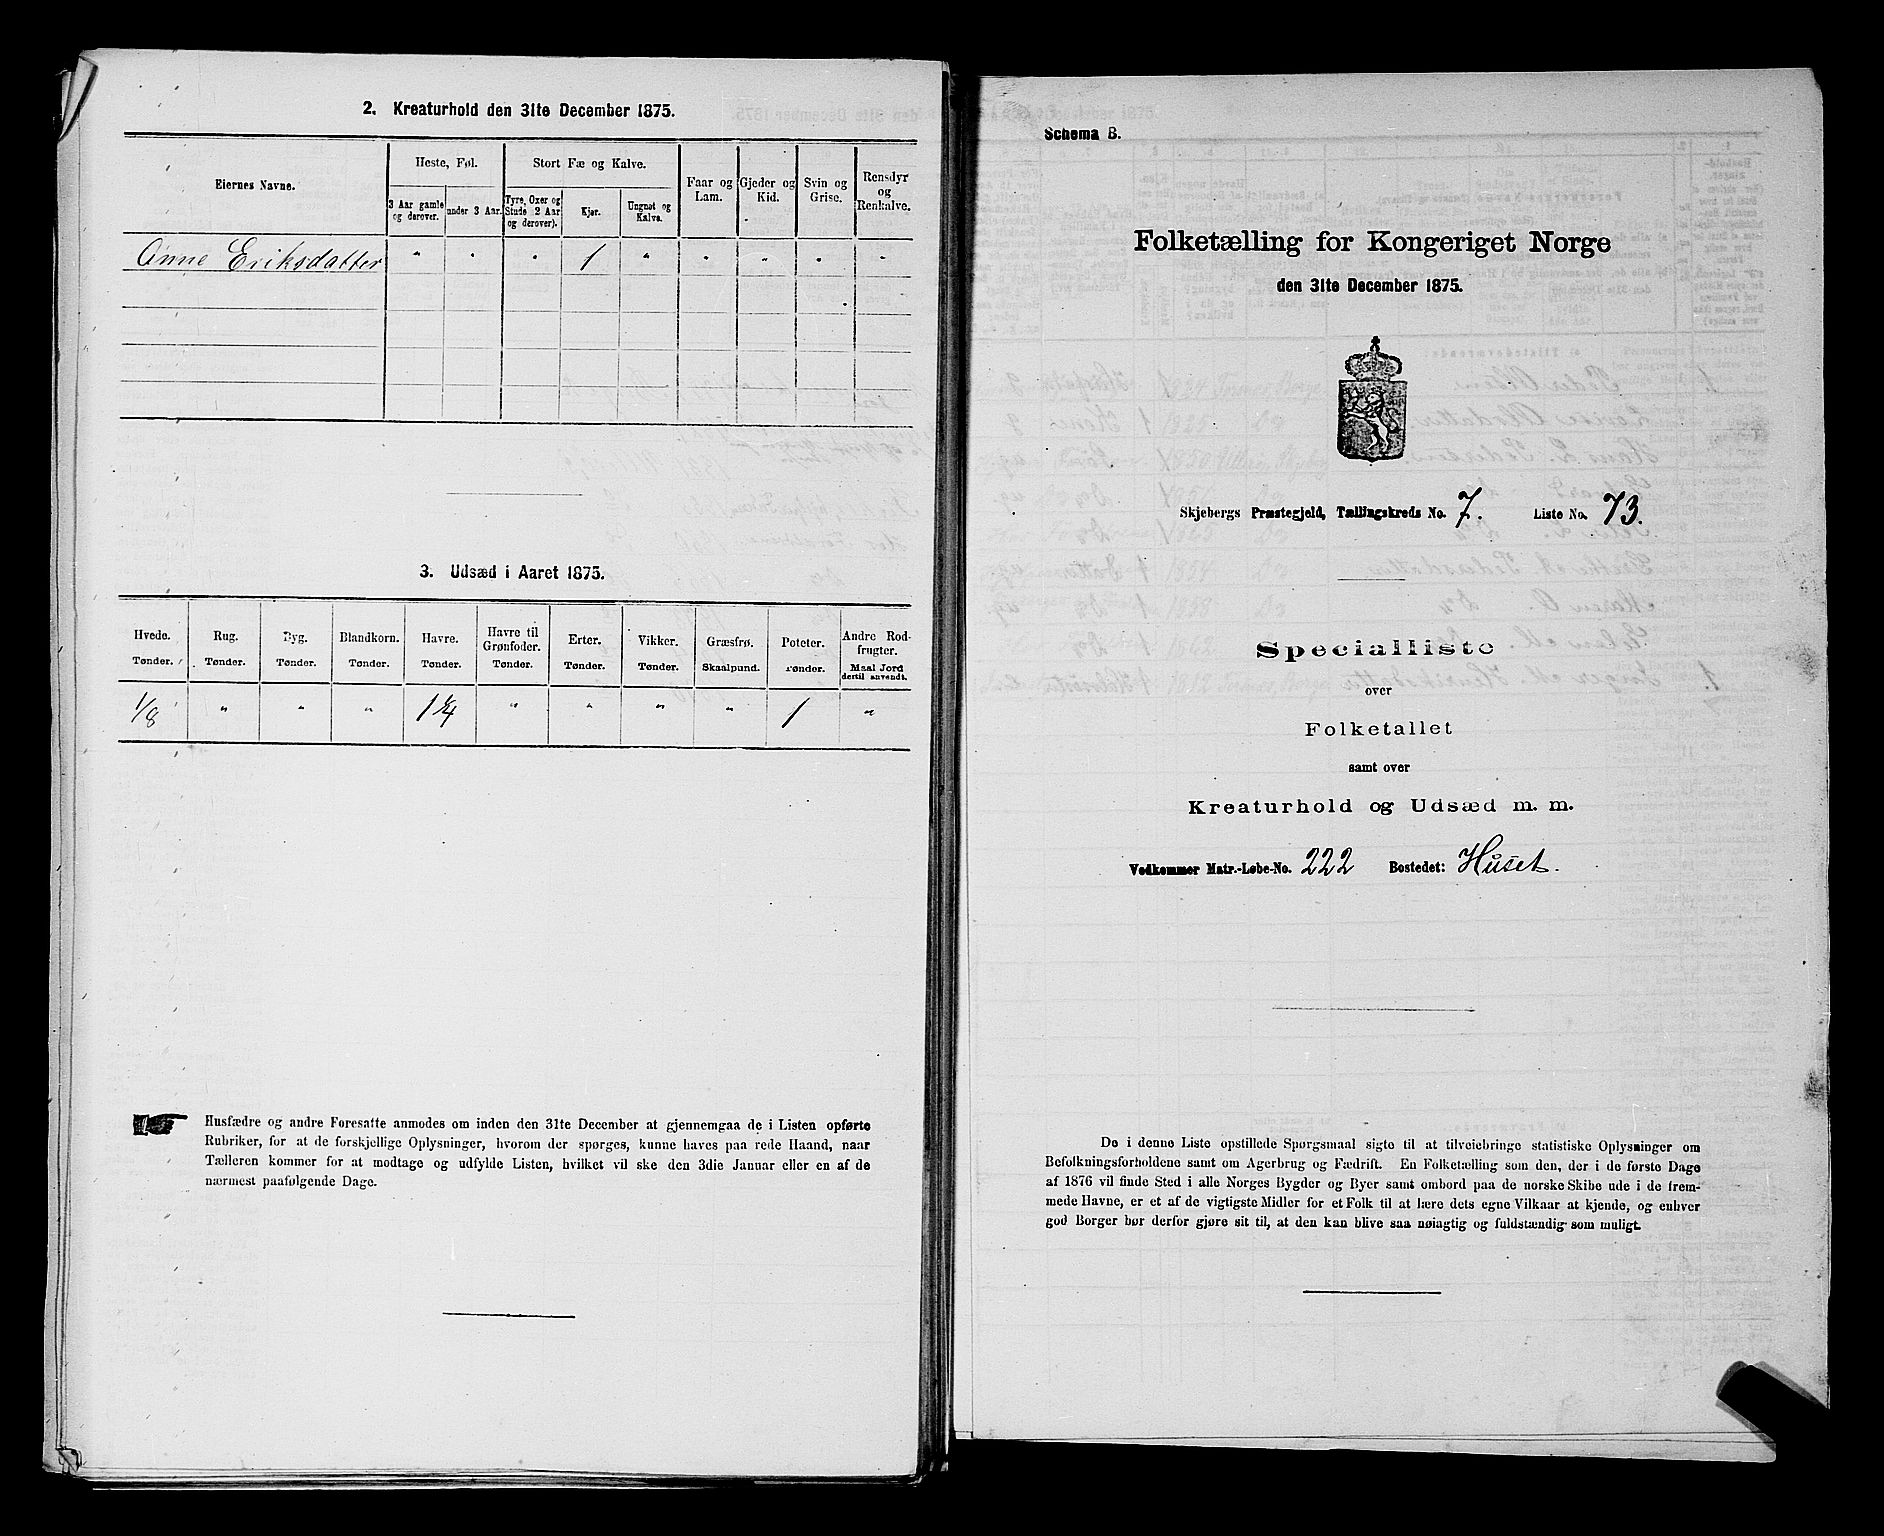 2. Kreaturhold den 31te December 1875.
Eiernes Navne.
Heste, Føl.
Stort Fæ og Kalve.
Faar og Lam.
Gjeder og Kid.
Svin og Grise.
Rensdyr og Renkalve.
3 Aar gamle og derover.
under 3 Aar.
Tyre, Oxer og Stude 2 Aar og derover).
Kjør.
Ungnøt og Kalve.
Anne Eriksdatter " " " 1 " " " " "
3. Udsæd i Aaret 1875.
Hvede. Rug. Byg. Blandkorn. Havre. Havre til Grønfoder. Erter. Vikker. Græsfrø. Poteter. Andre Rodfrugter.
Tønder. Tønder. Tønder. Tønder. Tønder. Tønder. Tønder. Tønder. Skaalpund. Tønder. Maal Jord dertil anvendt.
1/8 " " " 1 1/4 " " " " 1 "
Husfædre og andre Foresatte anmodes om inden den 31te December at gjennemgaa de i Listen opførte
Rubriker, for at de forskjellige Oplysninger, hvorom der spørges, kunne haves paa rede Haand, naar
Tælleren kommer for at modtage og udfylde Listen, hvilket vil ske den 3die Januar eller en af de
nærmest paafølgende Dage.
Schema B.
Folketælling for Kongeriget Norge
den 31te December 1875.
Skjebergs Præstegjeld, Tællingskreds No. 7. Liste No. 73.
Specialliste
over
Folketallet
samt over
Kreaturhold og Udsæd m. m.
Vedkommer Matr.-Løbe-No. 222 Bostedet: Huset.
De i denne Liste opstillede Spørgsmaal sigte til at tilveiebringe statistiske Oplysninger om
Befolkningsforholdene samt om Agerbrug og Fædrift. En Folketælling som den, der i de første Dage
af 1876 vil finde Sted i alle Norges Bygder og Byer samt ombord paa de norske Skibe ude i de frem-
mede Havne, er et af de vigtigste Midler for et Folk til at lære dets egne Vilkaar at kjende, og enhver
god Borger bør derfor gjøre sit til, at den kan blive saa nøiagtig og fuldstændig som muligt.